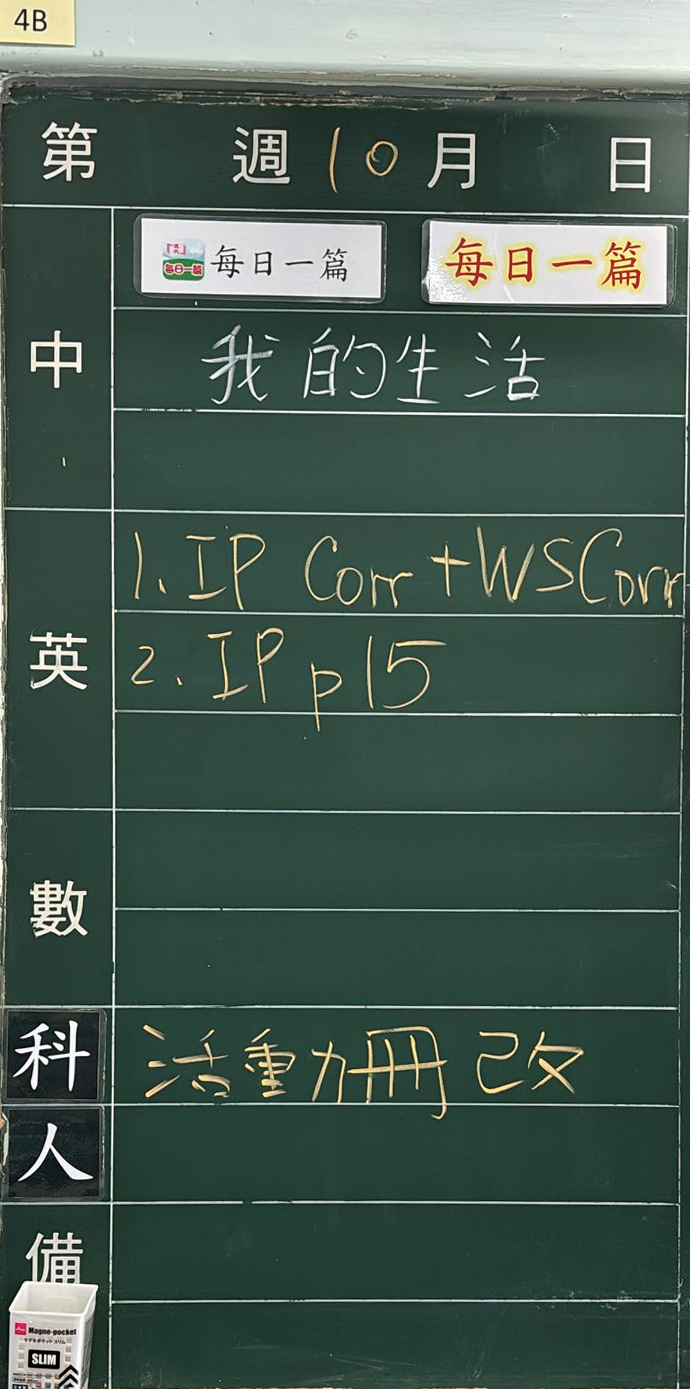 4B
第 週 10 月 日
中
每日一篇 每日一篇 每日一篇
我的生活
英
1. IP Corr + WS Corr
2. IP p15
數
科 活動冊改
人
備
Magne-pocket
マグネポケット スリム
SLIM